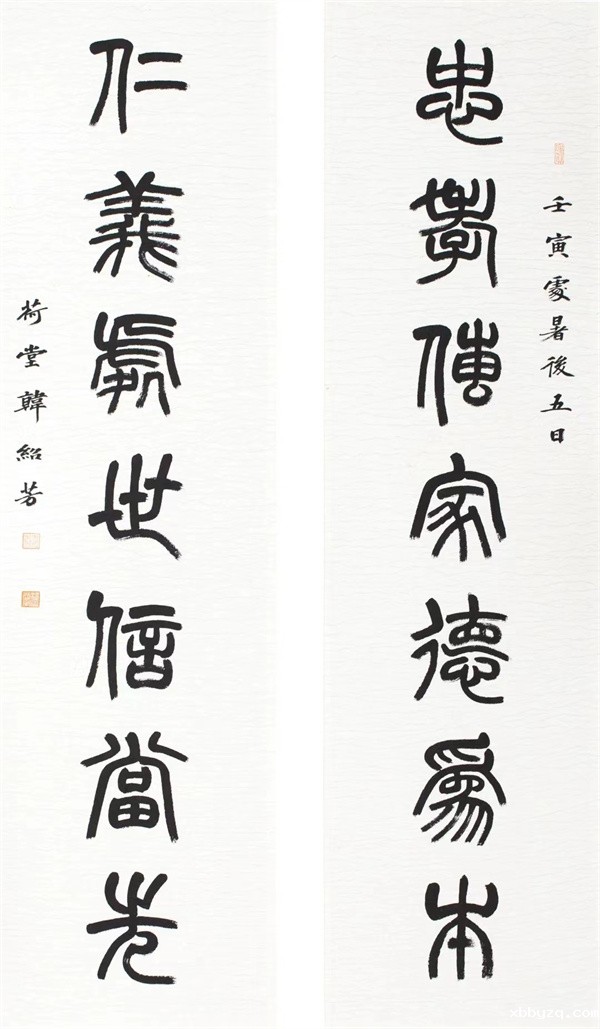 壬寅處暑後五日
忠孝傳家德為本
仁義處世信當先
荷堂韓紹芳
xbbyzq.com